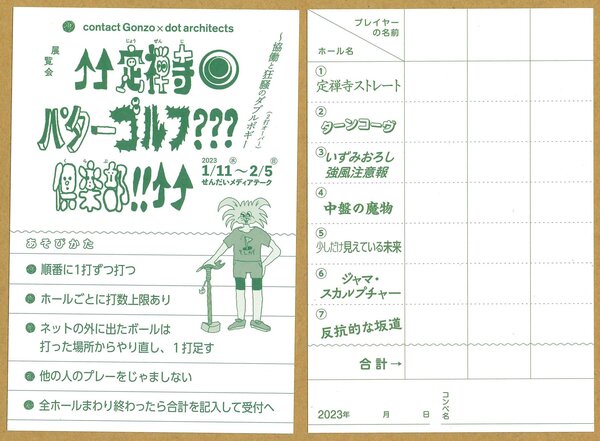 contact Gonzo × dot architects
展覧会
↑↑定禅寺◎
じょう ぜん じ
パターゴルフ???
倶楽部!!↑↑
くらぶ
〜協働と狂騒のダブルボギー
(2打オーバー)
2023
1/11㊌〜2/5㊐
せんだいメディアテーク
あそびかた
順番に1打ずつ打つ
ホールごとに打数上限あり
ネットの外に出たボールは
打った場所からやり直し、1打足す
他の人のプレーをじゃましない
全ホールまわり終わったら合計を記入して受付へ
プレイヤー
の名前
ホール名
①
定禅寺ストレート
②
ターンコーヴ
③
いずみおろし
強風注意報
④
中盤の魔物
⑤
少しだけ見えている未来
⑥
ジャマ・
スカルプチャー
⑦
反抗的な坂道
合計→
2023年 月 日
コンペ名